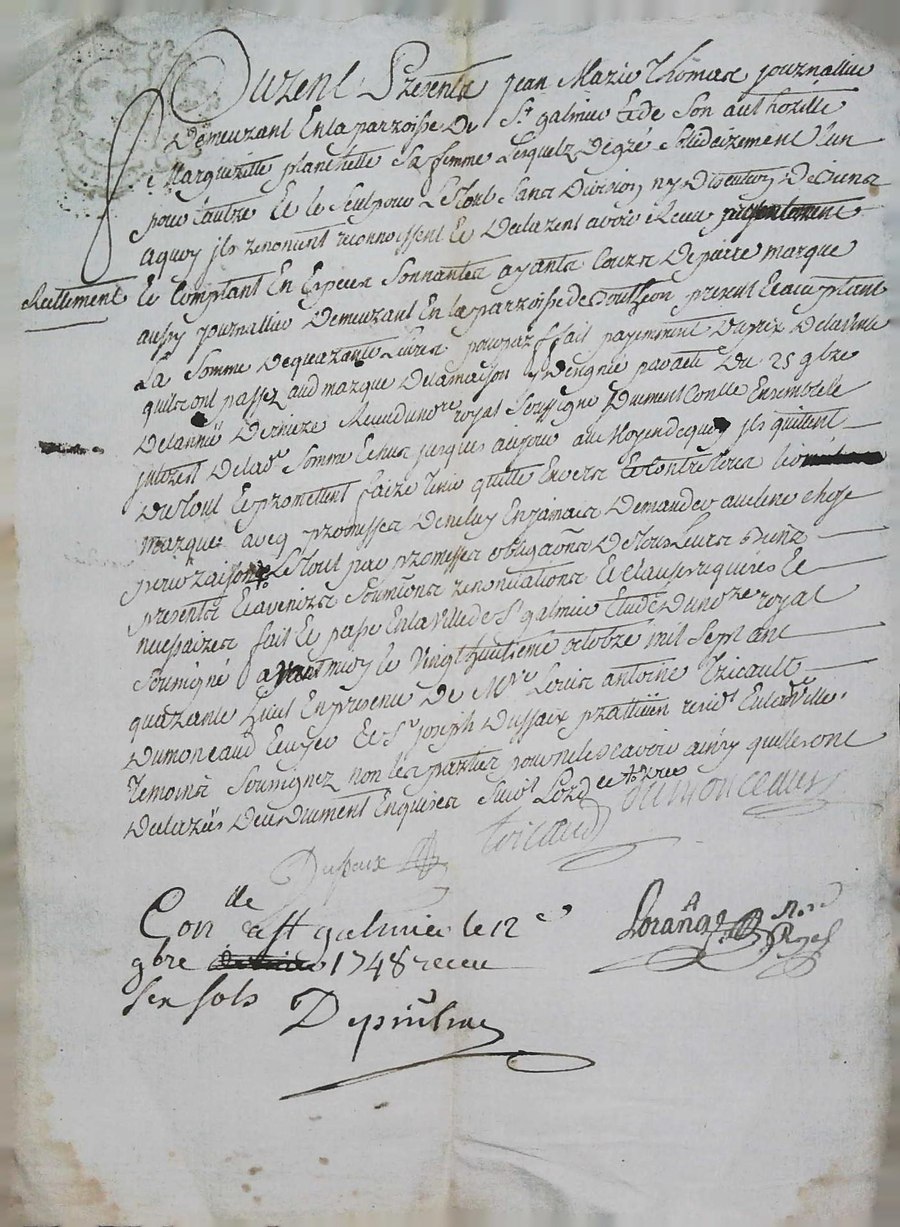 Furent Presents Jean Marie Thomas journallier
Demeurant En la parroisse De St galmier Et de Son authorité
Margueritte planchette Sa femme Lesquels De gré Solidairement l'un
pour l'autre Et le Seul pour Le tout Sans Division ny Discution De biens
aquoy jls renoncent reconnoissent Et Declarent avoir Receu
Reellement Et Comptant En Especes Sonnantes ayants Cours De pierre marque
aussy journallier Demeurant En la parroisse de present Et acceptant
La Somme De quarante Livres pour par fait payement Du prix De la vente
quils ont passez aud marque De la maison y Designée par acte Du 25 9bre
De lannée Derniere Receu du nore royal Soussigné Dument Conllé Ensemble
jnterest De lade Somme Echus jusques aujour au Moyen de quoy jls quittent
Du tout Et promettent faire tenir quitte Envers Et Contre tous led
marque avec promesses De ne luy En jamais Demander aucune chose
Le tout par promesses obligaons De tous Leurs Biens
presents Et avenirs Soumions renonciations Et clauses requises Et
necessaires fait Et passé En la ville de St galmier Etude Du nore royal
Soussigné le vingt huitieme octobre mil Sept cent
quarante huit En presence De Mre Louis antoine Tricault
Dumonceaud Ecuyer Et Sr joseph Dussaix praticien residt En lade ville
Temoins Soussignez non les parties pour ne le Scavoir ainsy quils ont
Declarés De ce Dument Enquises Suivt Lord
tricaud dumonceaux
Dussaix
Con de a St galmier le 12 e
9bre 1748 receu
Six sols
Nore
Royal